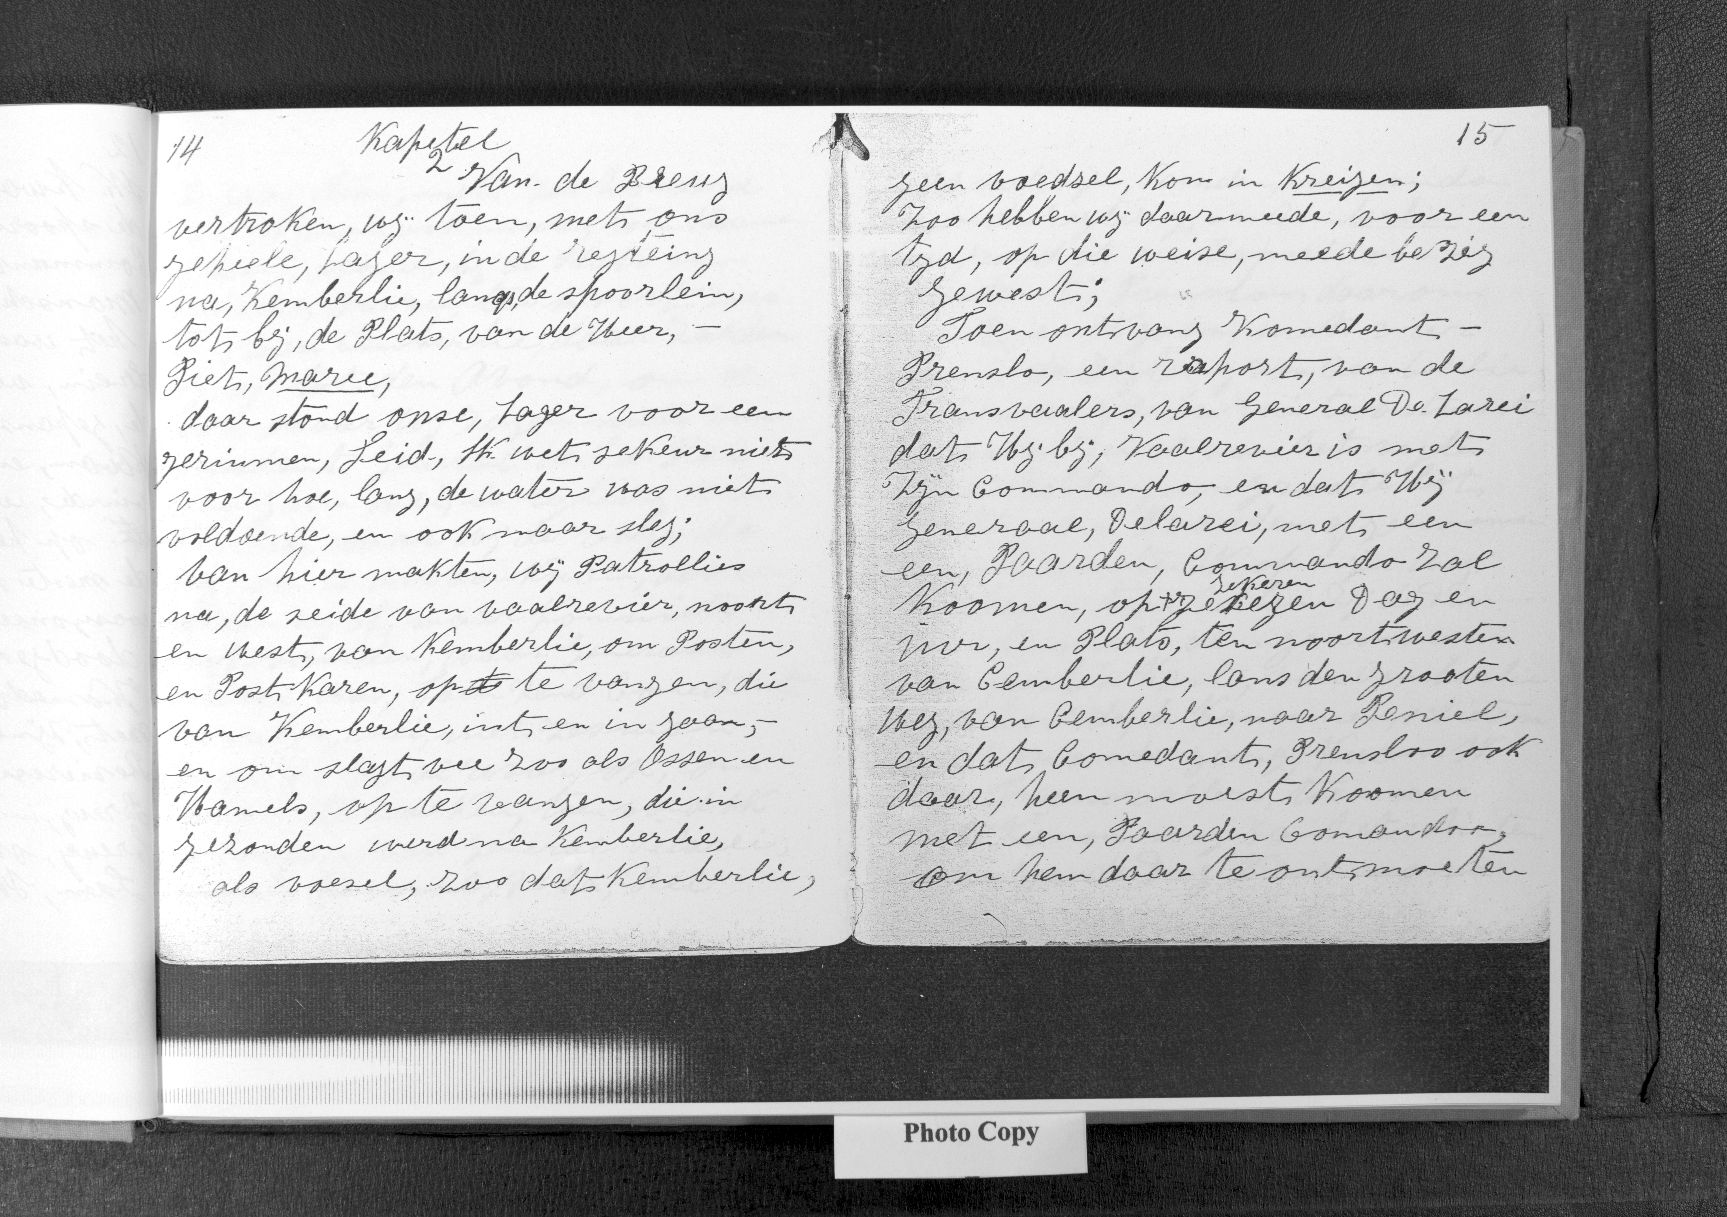 14
Kapetel
2
Van de Breug
vertroken, wy toen, met ons
geheele, Lager, in de regteing
na, Kemberlie, langs, de spoorlein,
tot by, de Plats, van de Heer, –
Piet, Maree,
daar stond onse, Lager voor een
geriumen, Teid, Ik wet sekeur niet
voor hoe, lang, de water was niet
voldoende, en ook maar sleg;
van hier makten, wy Patrollies
na, de seide van vaalrevier, noort
en west, van Kemberlie, om Posten,
en Post Karen, op te vangen, die
van Kemberlie, iut en in gaan, –
en om slagt vee zoo als Ossen en
Hamels, op te vangen, die in
gezonden werd na Kemberlie,
als voesel, zoo dat Kemberlie,
15
geen voedsel, kon in Kreigen;
Zoo hebben wy daarmeede, voor een
tyd, op die weise, meede bezig
Gewest;
Toen ontvang Komedant –
Prenslo, een raport, van de
Transvaalers, van General De Larei
dat Hy by, Vaalrevier is met
Zyn Commando, en dat Hy
Generaal, Delarei, met een
een, Paarden, Commando zal
Koomen, op zekeren Dag en
iuur, en Plats, ten noortwesten
van Cemberlie, lans den grooten
weg, van Cemberlie, naar Peniel,
en dat Comedant, Prensloo ook
daar, heen moest Koomen
met een, Paarden Comandoo,
om hem daar te ontmoeten
Photo Copy